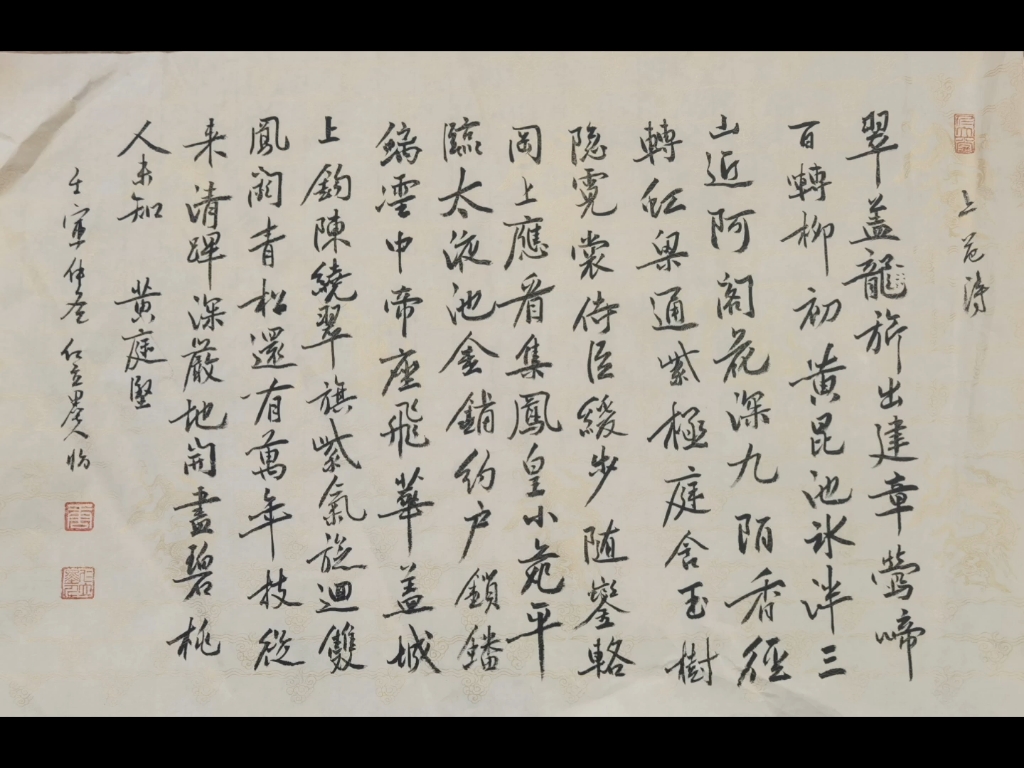 上苑詩
翠盖龍旂出建章鶯啼
百轉柳初黄昆池氷泮三
山近阿閣花深九陌香徑
轉虹梁通紫極庭含玉樹
隐霓裳侍臣緩步随鑾輅
岡上應看集鳳皇小苑平
臨太液池金鋪約户鎖蟠
螭雲中帝座飛華盖城
上鈎陳繞翠旗紫氣旋迴雙
鳳闕青松還有萬年枝從
来清蹕深嚴地開盡碧桃
人未知 黄庭堅
壬寅仲冬 仁立墨人临